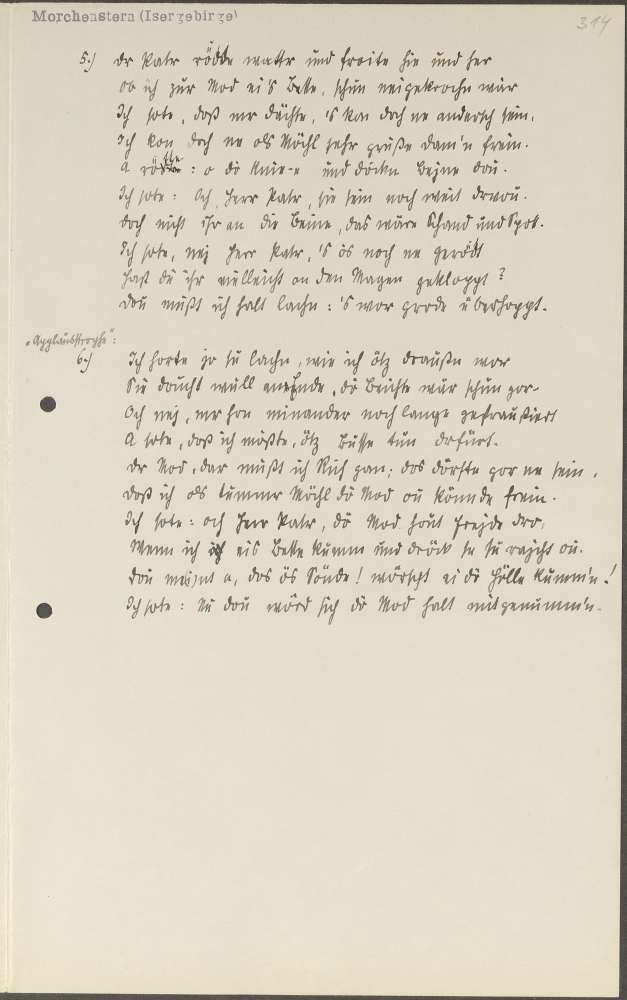 Morchenstern (Isergebirge)
314
5.) Dr Patr rödde wattr und froite hie und her
ob ich zur Mod ei's Bette, schun neigekrochn wär
Ich sote, doß mr dächte, 's kon doch ne andersch sein,
Ich kon doch ne ols Möchl sehr gruße dam'n frein.
A : o di Knie-e und döckn Bejne dou.
Ich sote: Och, Herr Patr, sie sein noch weit drvou.
doch nicht ihr an die Beine, das wäre Schand und Spot.
Ich sote, nej Herr Patr, 's ös noch ne gerödt
hast du ihr vielleicht an den Magen gekloppt?
dou mußt ich halt lachn: 's wor grode überhoppt.
"Applausstrophe":
6.) Ich horte jo su lachn, wie ich ötz draußn wor
Sie doucht wull , di Beichte wär schun gor.
Och nej, mr hon minander noch lange gefraußiert
A sote, doß ich mößte, ötz Busse tun drfürt.
dr Mod, dar mußt ich Ruh gan; dos dörfte gor ne sein,
doß ich ols tummr Möchl di Mod ou könnde frein.
Ich sote: och Herr Patr, di Mod hout Frejde dro,
Wenn ich eis Bette kumm und dröck se su rajcht ou.
dou mejnt a, dos ös Sönde! wörscht ei di Hölle kumm'n!
Ich sote: Nu dou wörd sich di Mod halt mitgenumm'n.